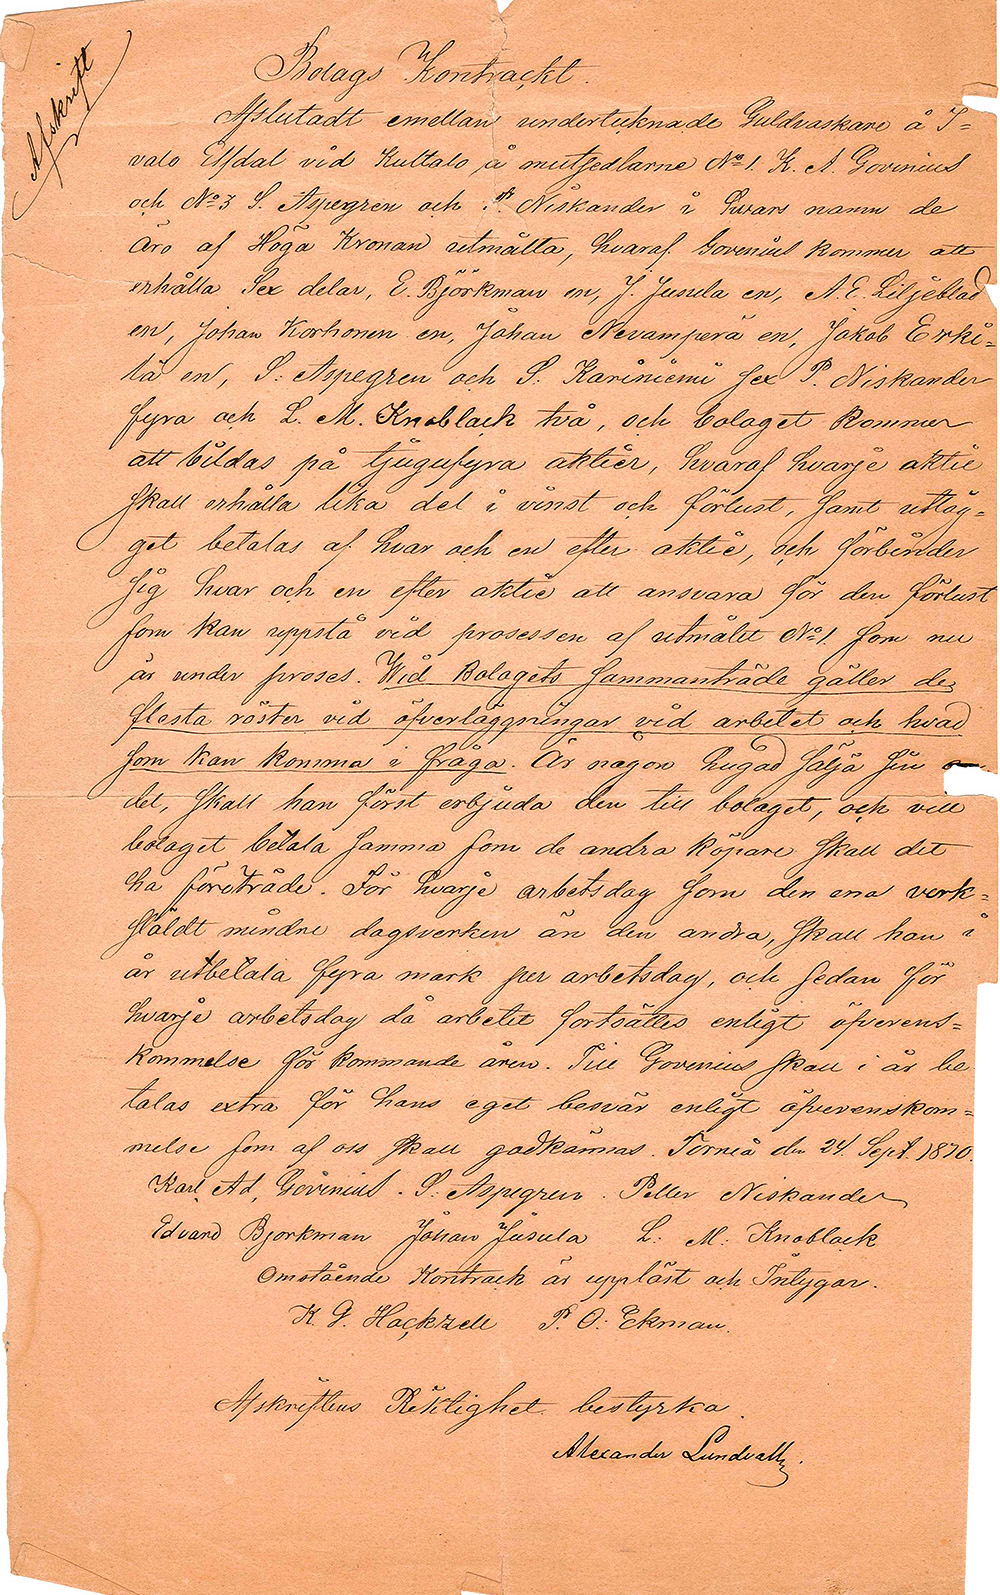 Afskrift
Bolags Kontrackt.
Afslutadt emellan undertecknade Guldvaskare å I=
valo Elfdal vid Kultalo å mutsedlarne No 1. K. A. Govenius
och No 3 S. Aspegren och P. Niskander i hvars namn de
äro af Höga Kronan utmålta, hvaraf Govenius kommer att
erhålla Sex delar, E. Björkman en, J. Jusula en, A. E. Liljeblad
en, Johan Korhonen en, Johan Nevamperä en, Jakob Erki=
lä en, S: Aspegren och S: Kariniemi sex P. Niskander
fyra och L. M. Knoblack två, och bolaget kommer
att bildas på tjugufyra aktier, hvaraf hvarje aktie
skall erhålla lika del i vinst och förlust, samt utläg=
get betalas af hvar och en efter aktie, och förbinder
sig hvar och en efter aktie att ansvara för den förlust
som kan uppstå vid prosessen af utmålet No 1. som nu
är under proses. Wid Bolagets sammanträde gäller de
flesta röster vid öfverläggningar vid arbetet och hvad
som kan komma i fråga. Är någon hugad sälja sin
del, skall han först erbjuda den till bolaget, och vill
bolaget betala samma som de andra köpare skall det
ha företräde. För hvarje arbetsdag som den ena verk=
stäldt mindre dagsverken än den andra, skall han i
år utbetala fyra mark per arbetsdag, och sedan för
hvarje arbetsdag då arbetet fortsättes enligt öfverens=
kommelse för kommande åren. Till Govenius skall i år be
talas extra för hans eget besvär enligt öfverenskom=
melse som af oss skall godkännas. Torneå den 24 Sept. 1870.
Karl Ad, Govenius. S: Aspegren. Petter Niskander
Edvard Bjorkman Johan Jusula L: M: Knoblack
Omstående Kontrack är uppläst och Inlygar.
K. G. Hackzell P. O: Ekman.
Afskriftens Riktighet bestyrka
Alexander Lundvall.